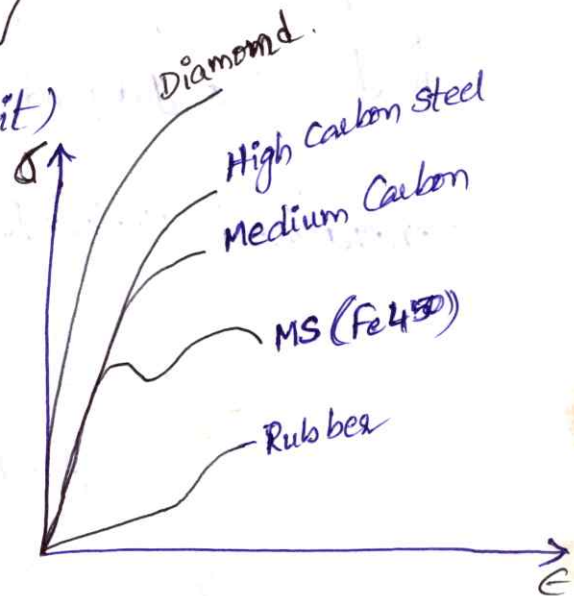 Diamomd.
it)
σ
High Carbon Steel
Medium Carbon
MS (Fe450)
Rubber
ϵ